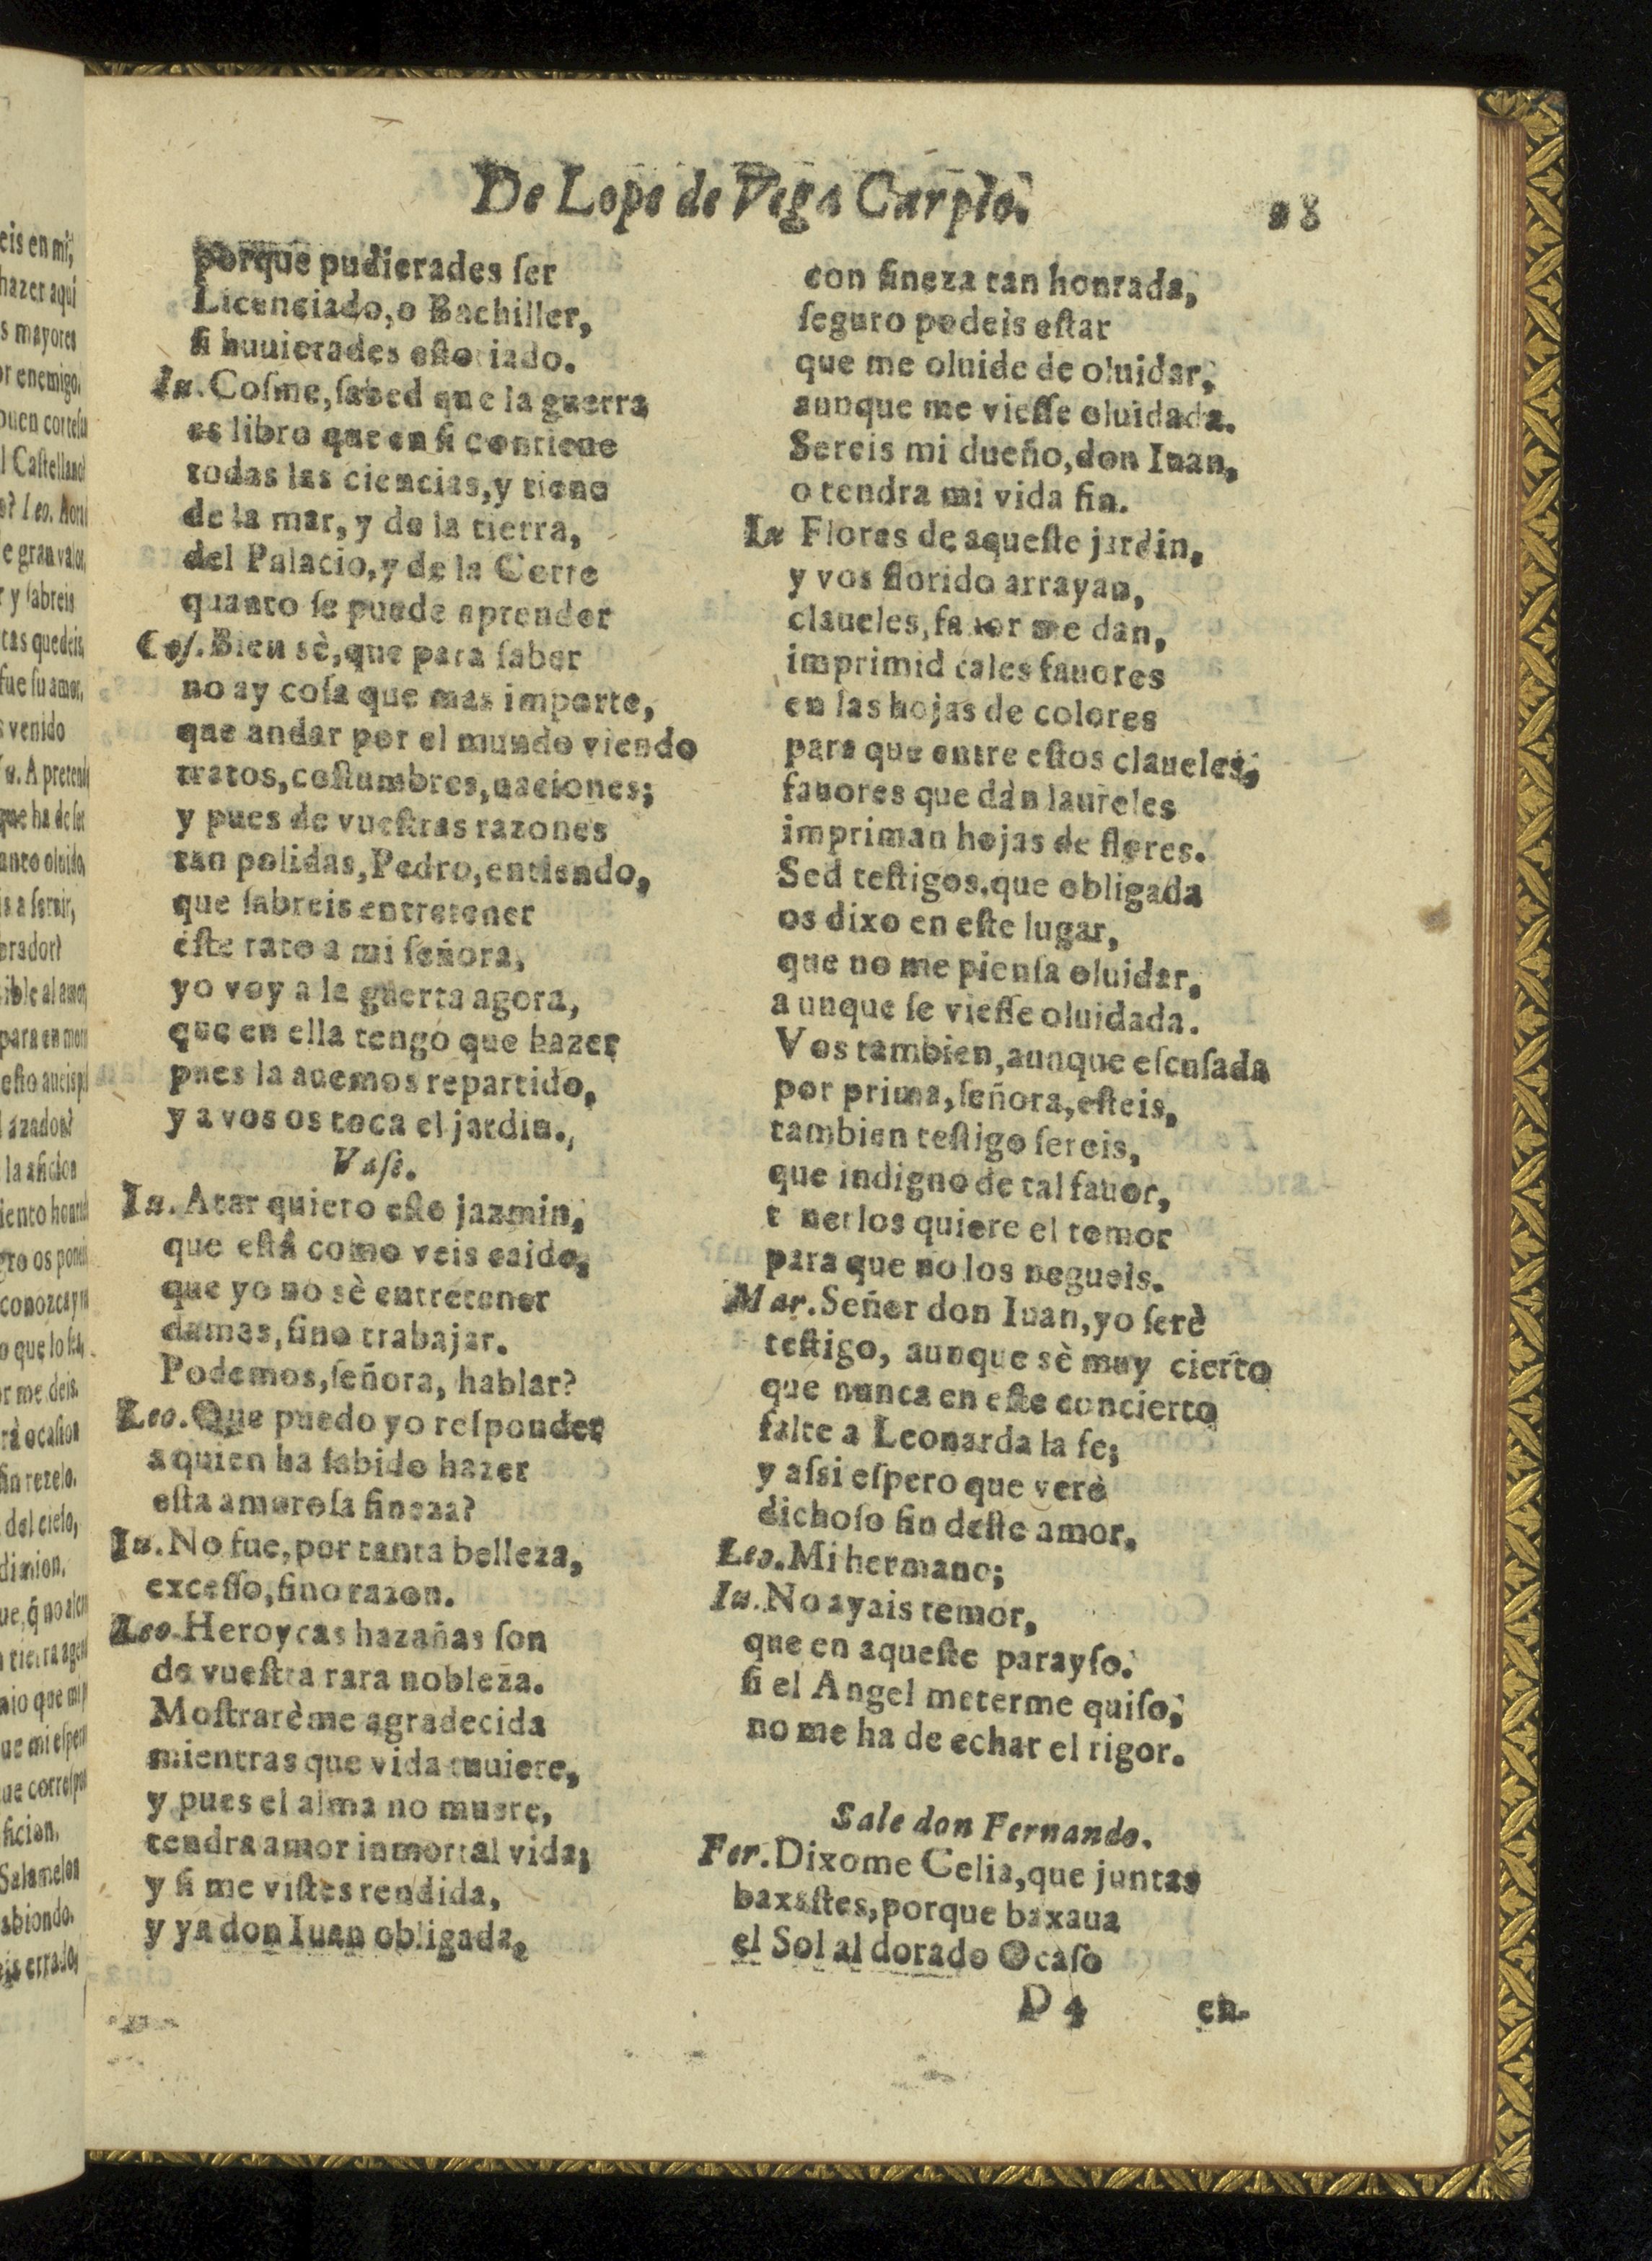 De Lope de Vega Carpio.
28
porque pudierades ſer
Licenciado, o Bachiller,
ſi huuierades eſtudiado.
Iu. Coſme, ſabed que la guerra
es libro que en ſi contiene
todas las ciencias, y tiene
de la mar, y de la tierra,
del Palacio, y de la Corte
quanto ſe puede aprender
Coſ. Bien sè, que para ſaber
no ay coſa que mas importe,
que andar por el mundo viendo
tratos, coſtumbres, naciones;
y pues de vueſtras razones
tan polidas, Pedro, entiendo,
que ſabreis entretener
eſte rato a mi ſeñora,
yo voy a la guerta agora,
que en ella tengo que hazer
pues la auemos repartido,
y a vos os toca el jardin.
Vaſe.
Iu. Atar quiero eſte jazmin,
que eſtá como veis caido,
que yo no sè entretener
damas, ſino trabajar.
Podemos, ſeñora, hablar?
Leo. Que puedo yo reſponder
a quien ha ſabido hazer
eſta amoroſa fineza?
Iu. No fue, por tanta belleza,
exceſſo, ſino razon.
Leo. Heroycas hazañas ſon
de vueſtra rara nobleza.
Moſtrarème agradecida
mientras que vida tuuiere,
y pues el alma no muere,
tendra amor inmortal vida;
y ſi me viſtes rendida,
y ya don Iuan obligada,
con fineza tan honrada,
ſeguro podeis eſtar
que me oluide de oluidar,
aunque me vieſſe oluidada.
Sereis mi dueño, don Iuan,
o tendra mi vida fin.
Iu Flores de aqueſte jardin,
y vos florido arrayan,
claueles, fauor me dan,
imprimid tales fauores
en las hojas de colores
para que entre eſtos claueles,
fauores que dàn laureles
impriman hojas de flores.
Sed teſtigos, que obligada
os dixo en eſte lugar,
que no me pienſa oluidar,
aunque ſe vieſſe oluidada.
Vos tambien, aunque eſcuſada
por prima, ſeñora, eſteis,
tambien teſtigo ſereis,
que indigno de tal fauor,
t nerlos quiere el temor
para que no los negueis.
Mar. Señor don Iuan, yo ſerè
teſtigo, aunque sè muy cierto
que nunca en eſte concierto
falte a Leonarda la fe;
y aſsi eſpero que verè
dichoſo fin deſte amor,
Leo. Mi hermano;
Iu. No ayais temor,
que en aqueſte parayſo.
ſi el Angel meterme quiſo,
no me ha de echar el rigor.
Sale don Fernando.
Fer. Dixome Celia, que juntas
baxaſtes, porque baxaua
el Sol al dorado Ocaſo
D 4
en-